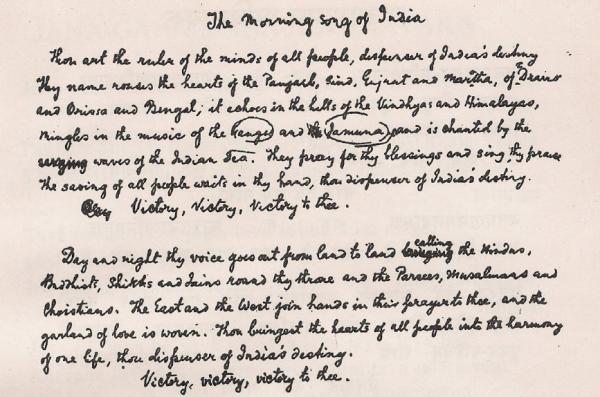 The Morning song of India
Thou art the ruler of the minds of all people, dispenser of India's destiny
Thy name rouses the hearts of the Panjaub, Sind, Gujrat and Maratha, of Dravid
and Orissa and Bengal; it echoes in the hills of the Vindhyas and Himalayas,
mingles in the music of the Ganges and the Jamuna and is chanted by the
waves of the Indian Sea. They pray for thy blessings and sing thy praise
The saving of all people waits in thy hand, thou dispenser of India's destiny.
Victory, Victory, Victory to thee.
Day and night thy voice goes out from land to land calling the Hindus,
Buddhists, Shikhs and Jains round thy throne and the Parsees, Musalmans and
Christians. The East and the West join hands in their prayer to thee, and the
garland of love is woven. Thou bringest the hearts of all people into the harmony
of one life, thou dispenser of India's destiny.
Victory, victory, victory to thee.